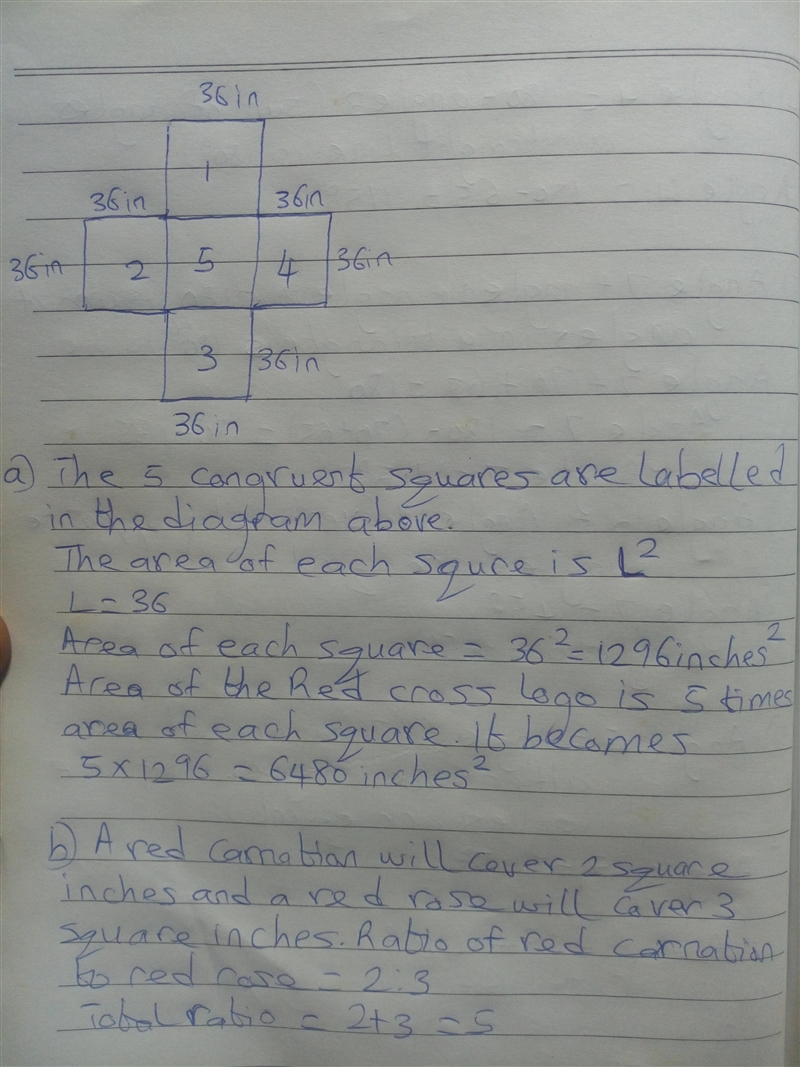 36in
1
36in 36in
36in 2 5 4 36in
3 36in
36in
a) The 5 congruent squares are labelled
in the diagram above.
The area of each squre is L²
L = 36
Area of each square = 36² = 1296 inches²
Area of the Red cross logo is 5 times
area of each square. It becomes
5 × 1296 = 6480 inches²
b) A red carnation will cover 2 square
inches and a red rose will cover 3
square inches. Ratio of red carnation
to red rose = 2:3
Total ratio = 2+3 = 5